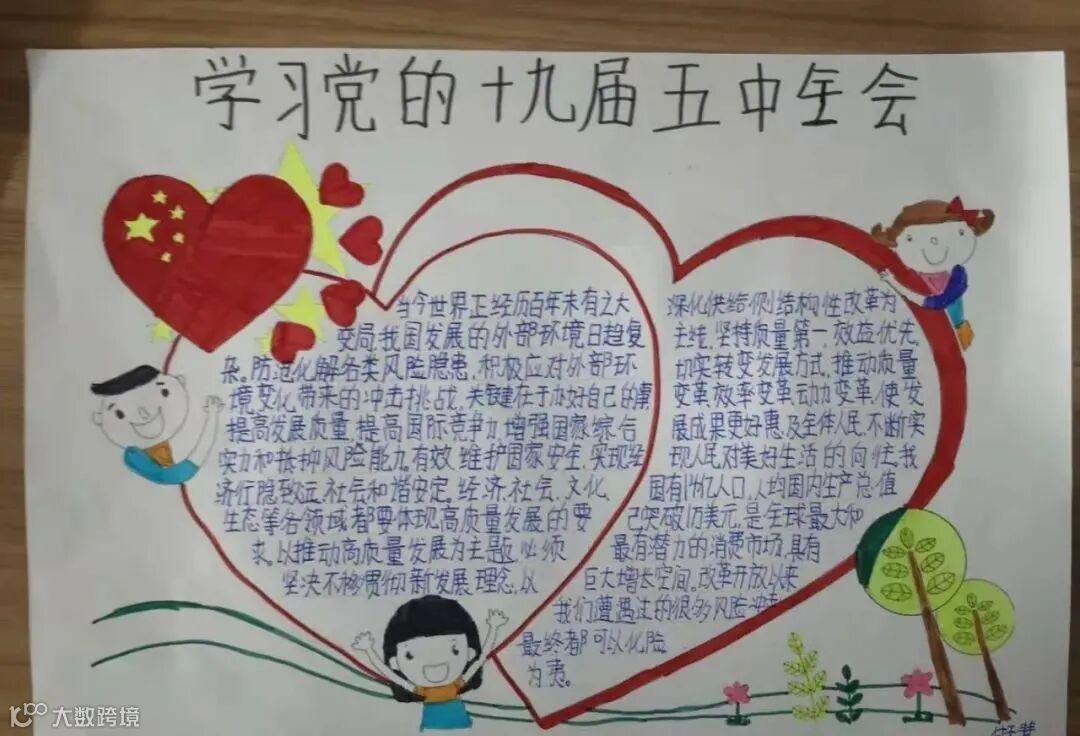 学习党的十九届五中全会
当今世界正经历百年未有之大
变局,我国发展的外部环境日趋复
杂。防范化解各类风险隐患,积极应对外部环
境变化带来的冲击挑战,关键在于办好自己的事
提高发展质量,提高国际竞争力,增强国家综合
实力和抵御风险能力,有效维护国家安全,实现经
济行稳致远,社会和谐安定。经济,社会,文化,
生态等各领域都要体现高质量发展的要
求。以推动高质量发展为主题,必须
坚决不移贯彻新发展理念,以
深化供给侧结构性改革为
主线,坚持质量第一,效益优先,
切实转变发展方式,推动质量
变革,效率变革,动力变革,使发
展成果更好惠及全体人民,不断实
现人民对美好生活的向往。我
国有14亿人口,人均国内生产总值
已突破1万美元,是全球最大和
最有潜力的消费市场,具有
巨大增长空间。改革开放以来
我们遭遇过的很多风险
最终都可以化险
为夷。
大数跨境